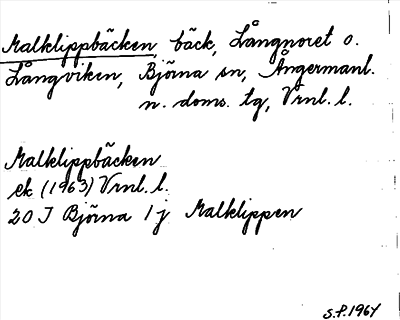 Malklippbäcken, bäck, Långnoret o.
Långviken, Björna sn, Ångermanl.
n. doms. tg, Vrnl. l.
Malklippbäcken
ek (1963) Vrnl. l.
20 I Björna 1 j Malklippen
S.P. 1964